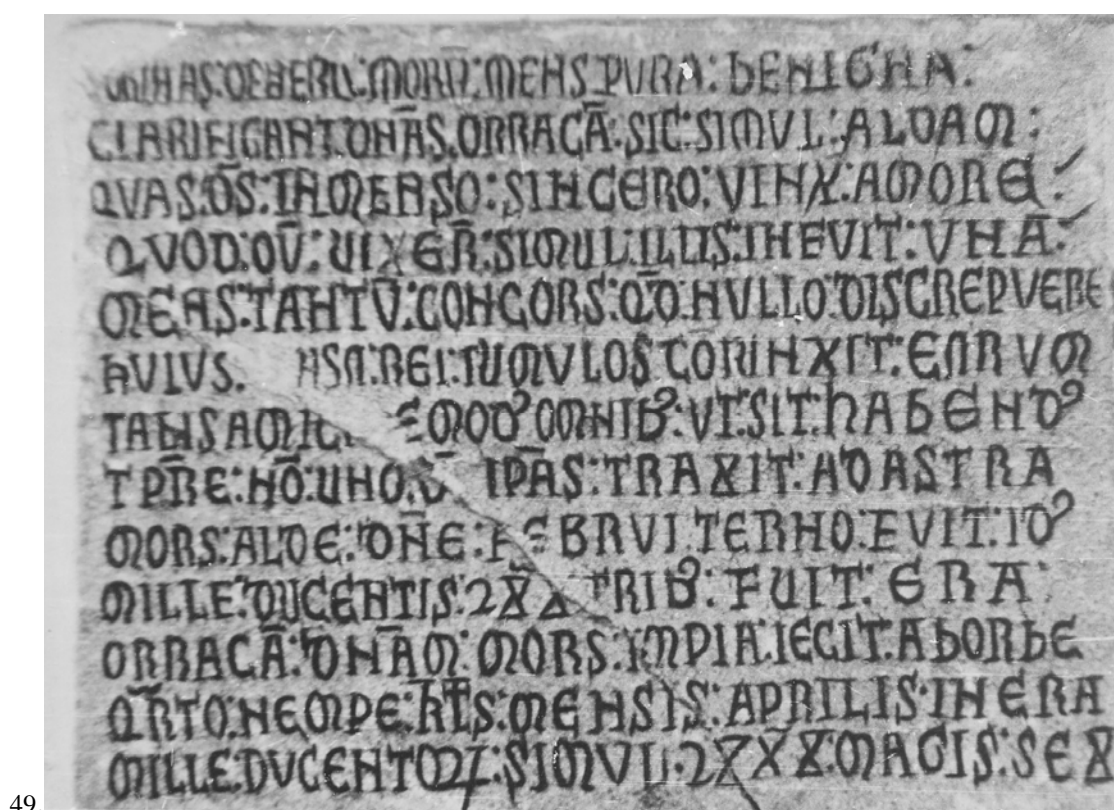 MENS PURA: BENIGNA:
CLARIFICANT: DN̄AS: ORRACĀ: SIC: SIMVL: ALDAM:
QVAS: ŌS: INMENSO: SINCERO: VINX: AMORE:
QVOD: QV̄: UIXER̄: SIMUL: ILLIS: INFVIT: VNĀ:
MENS: TANTV̄: CONCORS: QD̄: NVLLO: DISCREPVERE
HVIVS. REI: TUMVLOS EARVM
OMNIB9: VT: SIT: HABEND9
TPR̄E: NŌ: UNO: IPĀS: TRAXIT: AD ASTRA
MORS: ALDE: DN̄E: FEBRVI: TERNO: FVIT: ID9
MILLE: DUCENTIS: TRIB9: FUIT: ERA
ORRACĀ: DNĀM: MORS: IMPIA: IECIT: AB ORBE
QR̄TO: NEMPE: KL̄S: MENSIS: APRILIS: IN ERA
MILLE: DVCENTOR: SIMVL: MAGIS: SEX
49